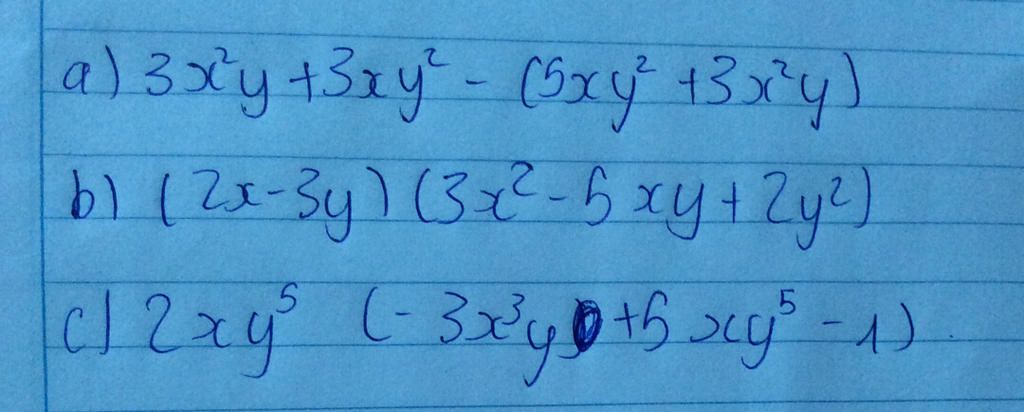 a) 3x²y + 3xy² - (5xy² + 3x²y)
b) (2x - 3y) (3x² - 5xy + 2y²)
c) 2xy⁵ (- 3x³y + 5xy⁵ - 1).